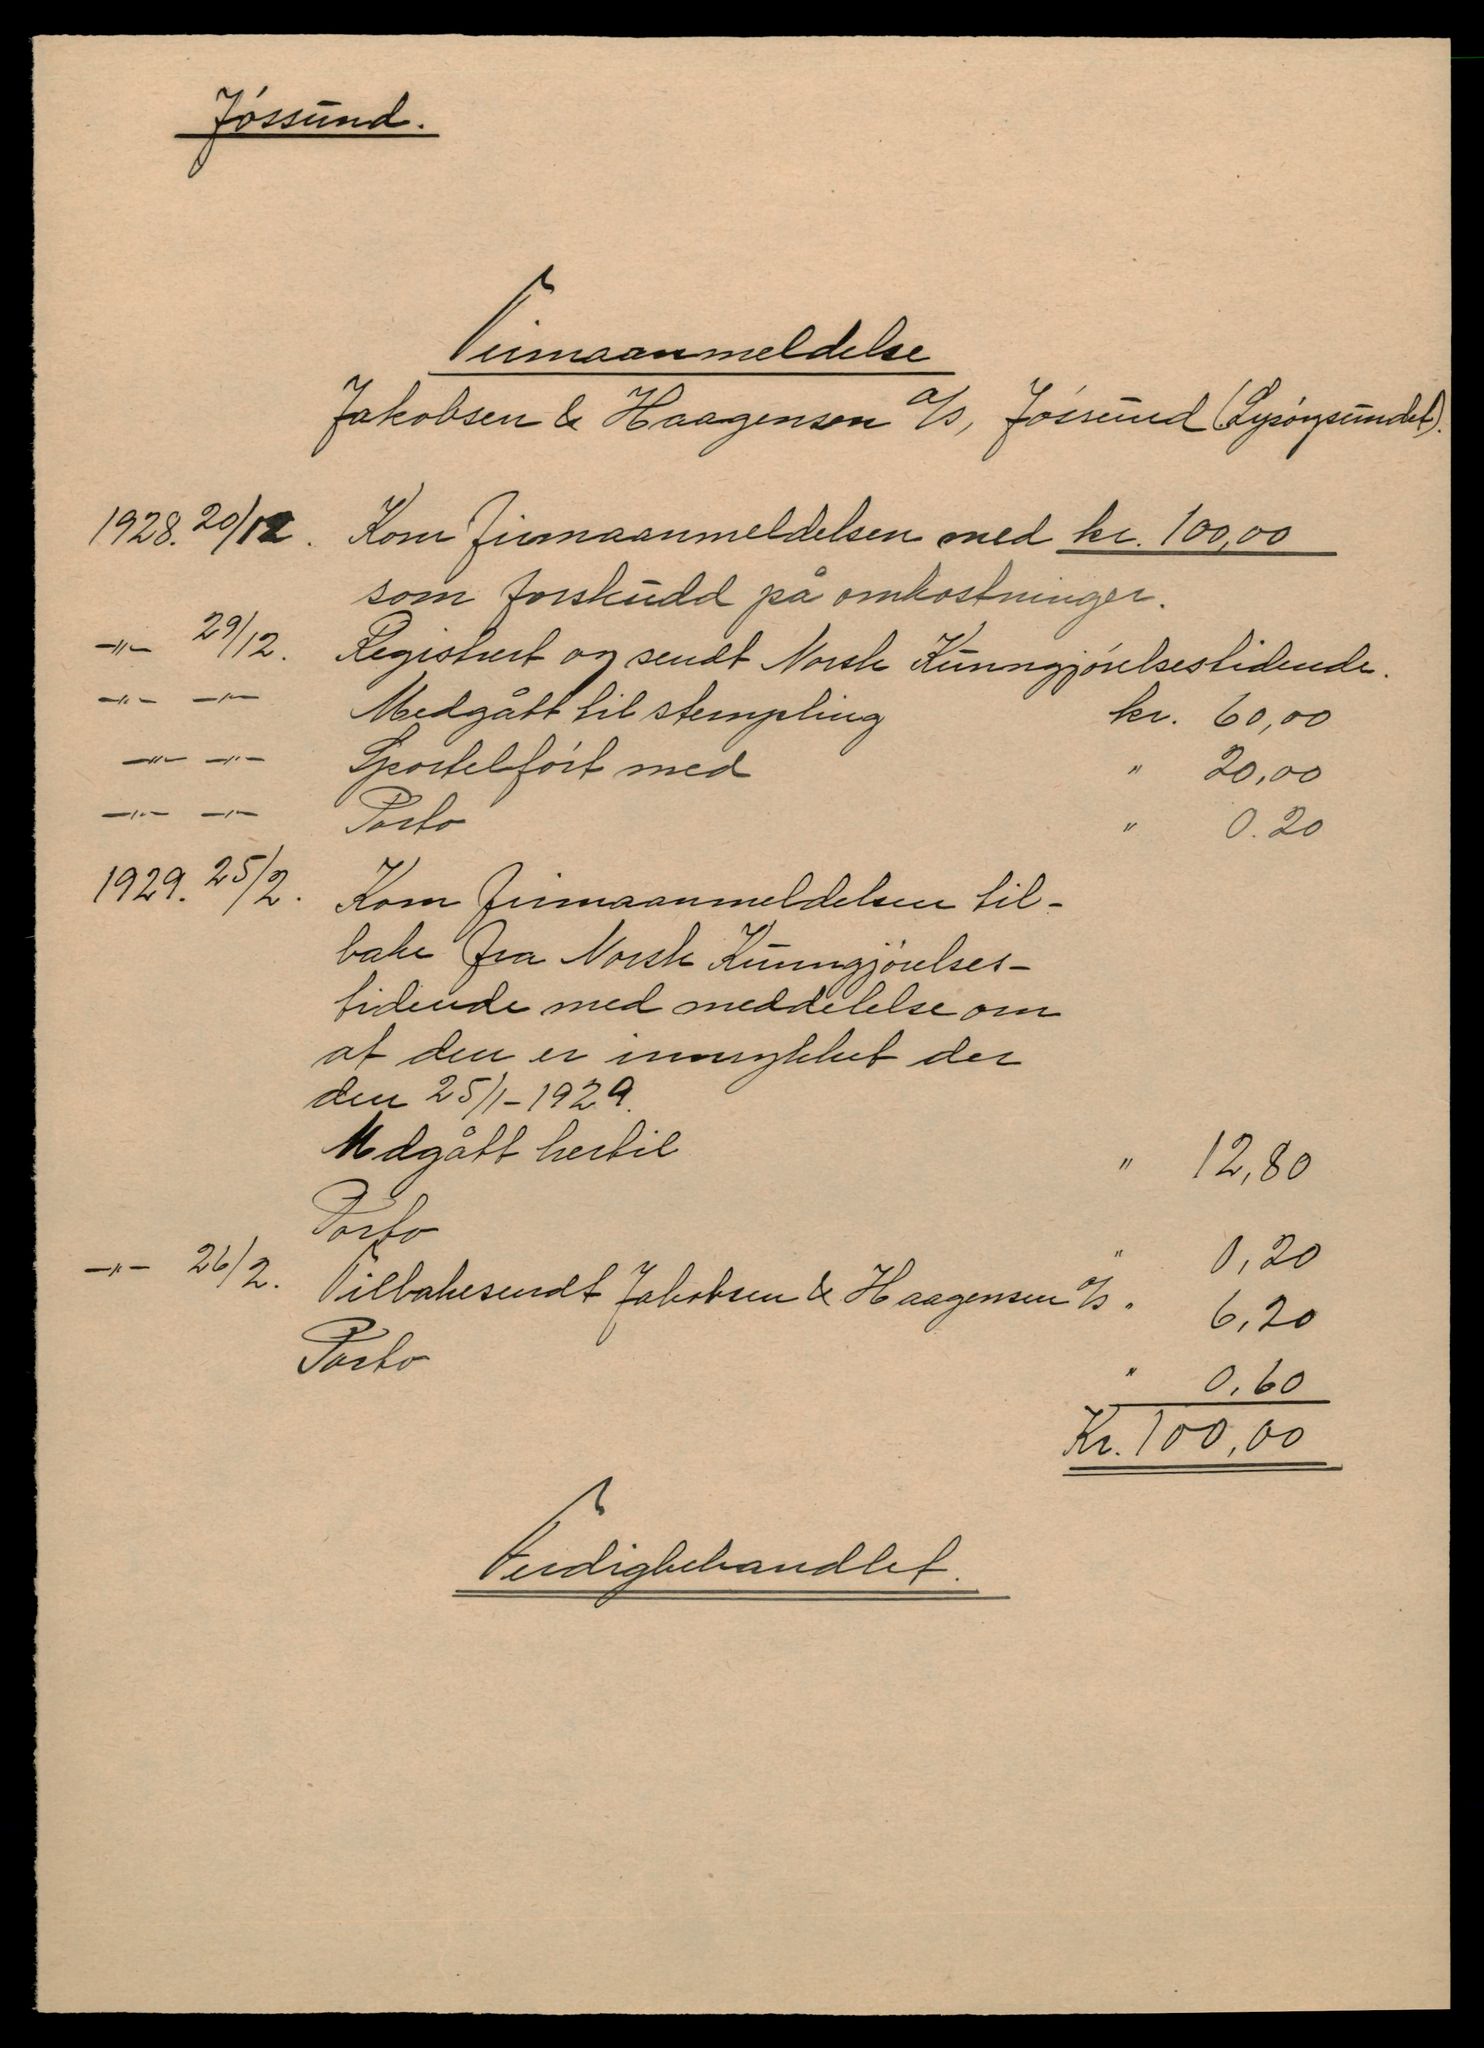 Jóssund.
Firmaanmeldelse
Jakobsen & Haagensen a/s, Jóssund (Lysóysundet).
1928. 20/12. Kom firmaanmeldelsen med kr. 100,00
som forskudd på omkostninger.
—"— 29/12. Registrert og sendt Norsk Kunngjórelsestidende.
—"— —"— Medgått til stempling kr. 60,00
—"— —"— Sportelfórt med " 20,00
—"— —"— Porto " 0.20
1929. 25/2. Kom firmaanmeldelsen til-
bake fra Norsk Kunngjórelses-
tidende med meddelelse om
at den er innrykket der
den 25/1-1929.
Medgått hertil " 12,80
Porto " 0,20
—"— 26/2. Tilbakesendt Jakobsen & Haagensen a/s " 6,20
Porto " 0,60
Kr. 100,00
Ferdigbehandlet.